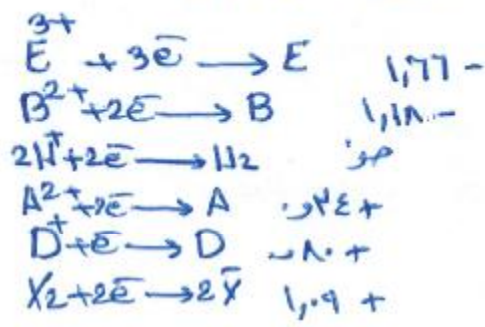 E³⁺ + 3e̅ ⟶ E ١,٦٦ -
B²⁺ + 2e̅ ⟶ B ١,١٨ -
2H⁺ + 2e̅ ⟶ H₂ صفر
A²⁺ + 2e̅ ⟶ A ٠,٣٤ +
D⁺ + e̅ ⟶ D ٠,٨٠ +
X₂ + 2e̅ ⟶ 2X̅ ١,٠٩ +